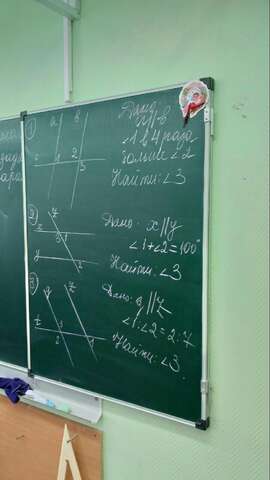 1
a
b
c
1
2
3
Дано
a||b
∠1 в 4 раза
больше ∠2
Найти: ∠3
2
z
x
3
1
y
2
Дано: x||y
∠1+∠2=100°
Найти: ∠3
3
t
3
2
1
∠1:∠2=2:7
Найти: ∠3